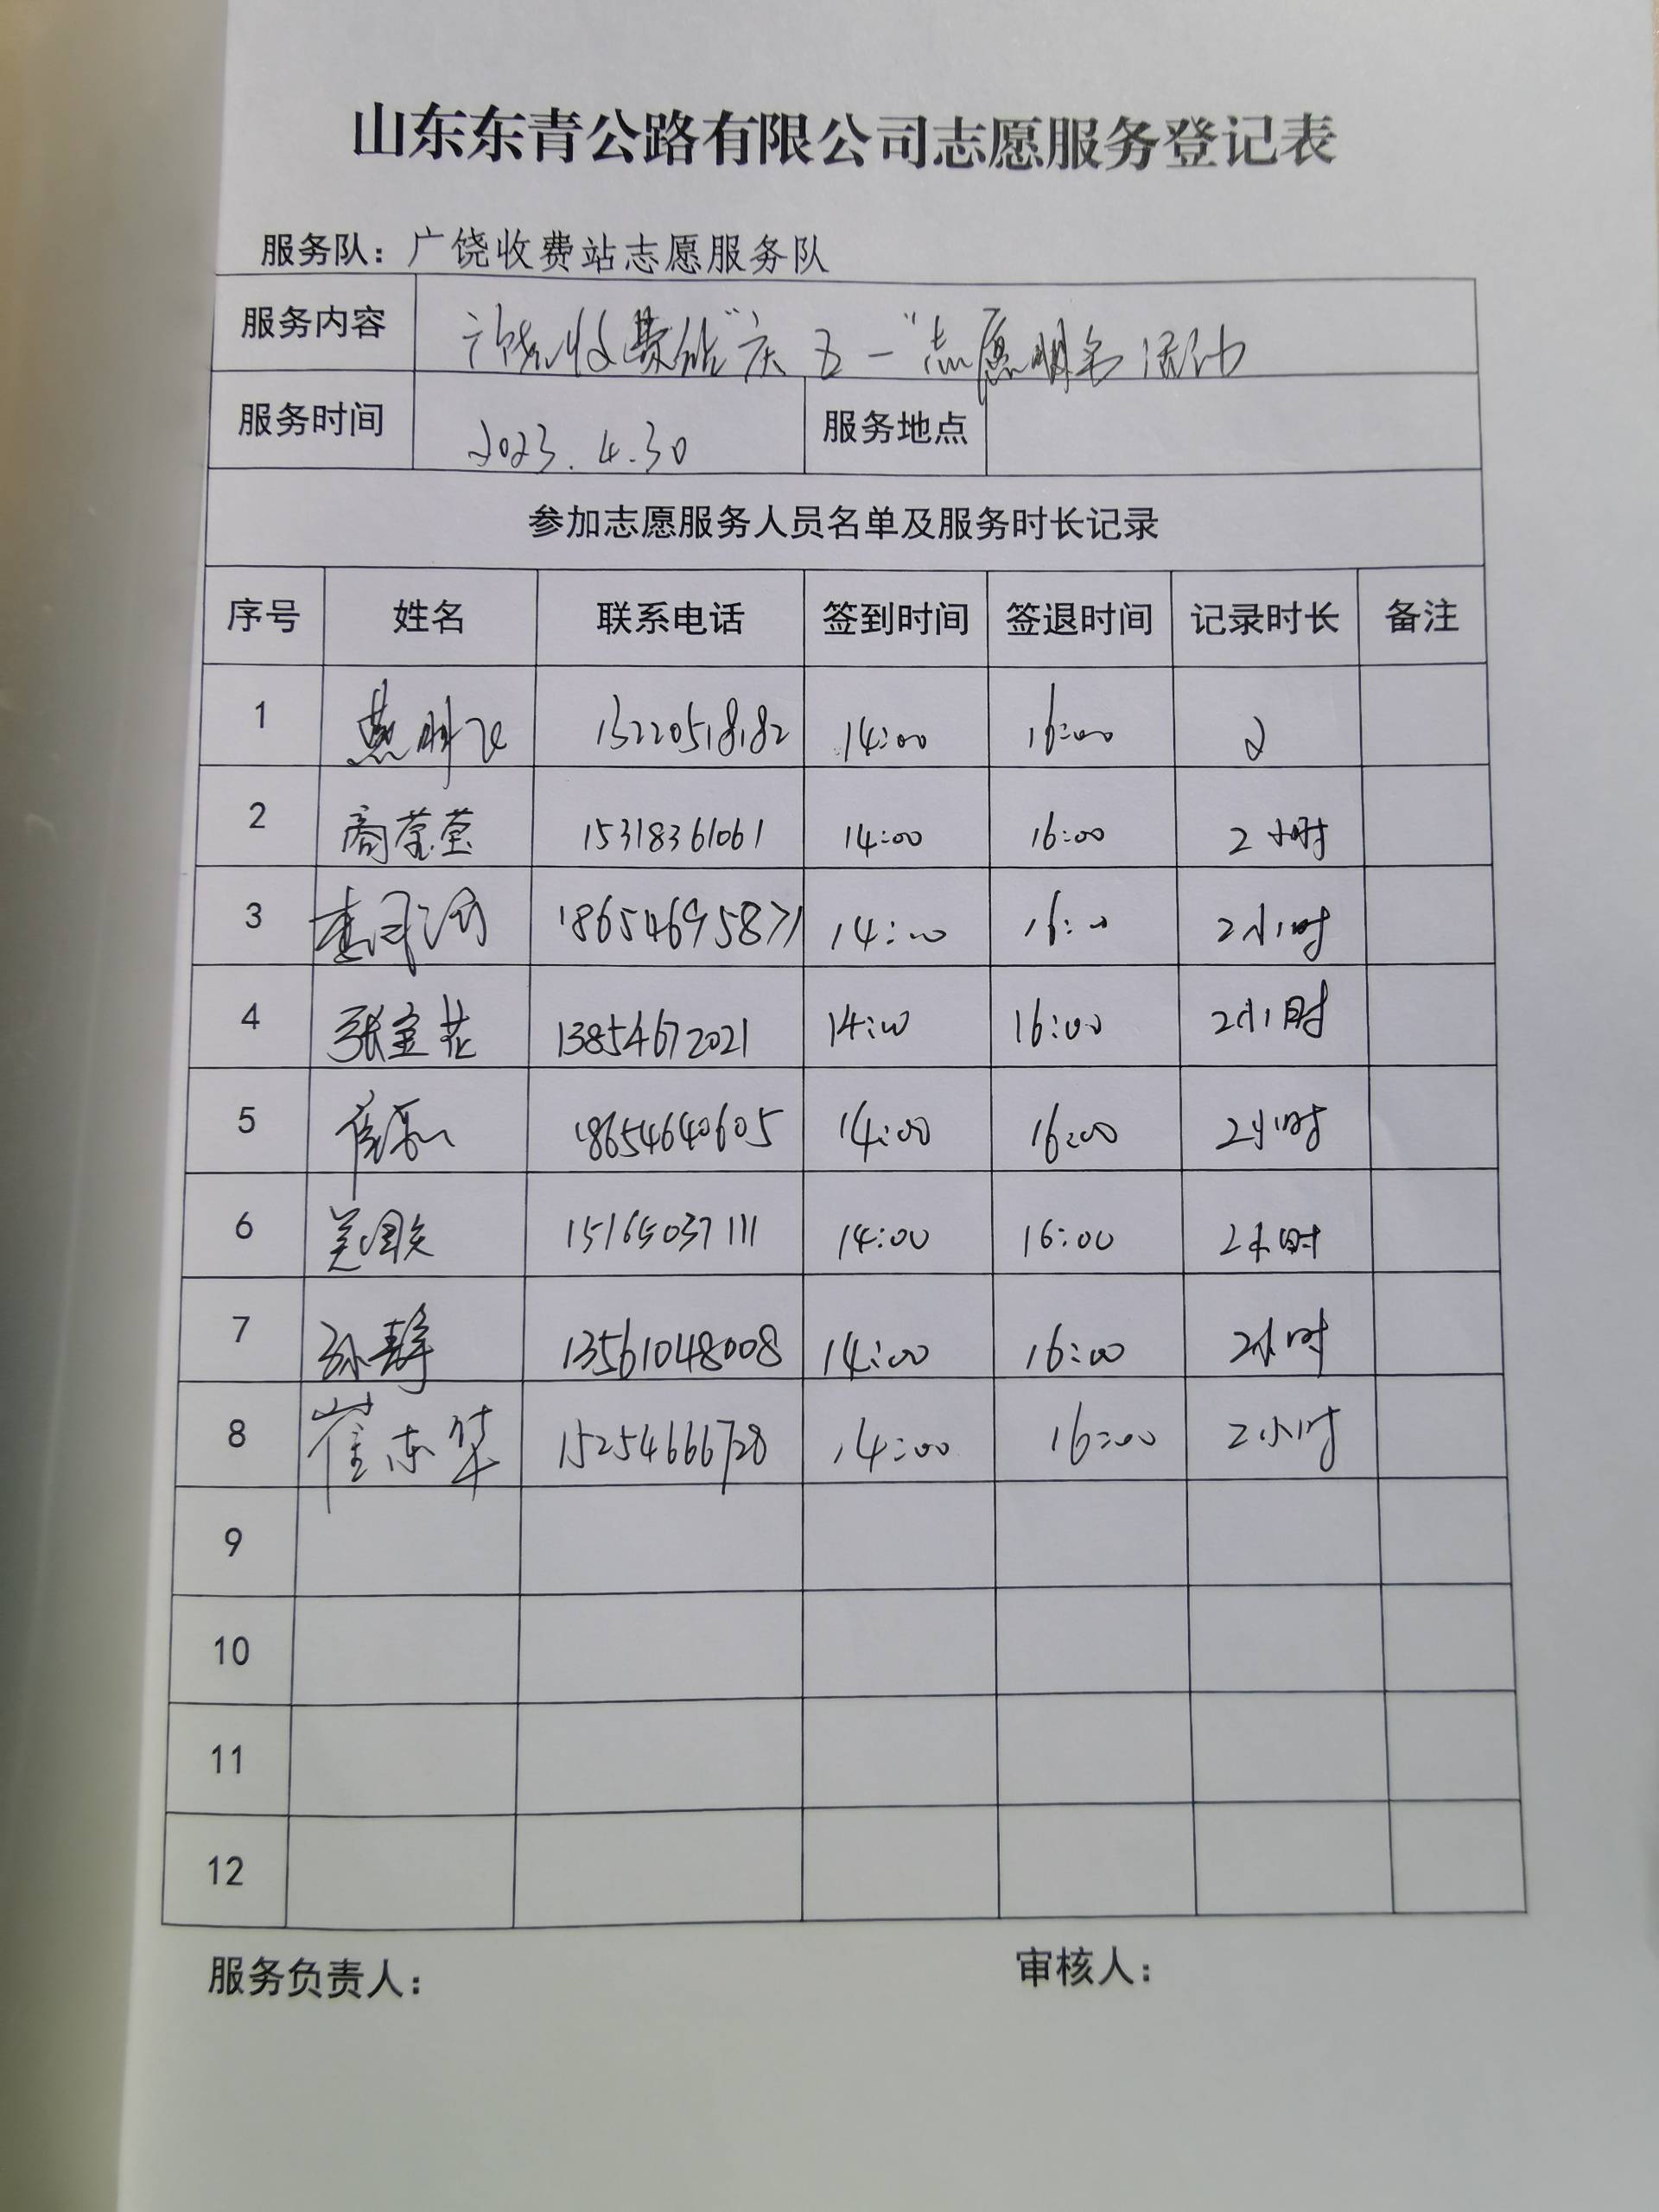 山东东青公路有限公司志愿服务登记表
服务队：广饶收费站志愿服务队
服务内容 广饶收费站"庆五一"志愿服务活动
服务时间 2023.4.30 服务地点
参加志愿服务人员名单及服务时长记录
序号 姓名 联系电话 签到时间 签退时间 记录时长 备注
1 14:00 16:00 2
2 商莹莹 15318361061 14:00 16:00 2小时
3 18654695871 14:00 16:00 2小时
4 张宝花 13854672021 14:00 16:00 2小时
5 18654640605 14:00 16:00 2小时
6 15165037111 14:00 16:00 2小时
7 孙静 13561048008 14:00 16:00 2小时
8 崔东华 15254666728 14:00 16:00 2小时
9
10
11
12
服务负责人： 审核人：